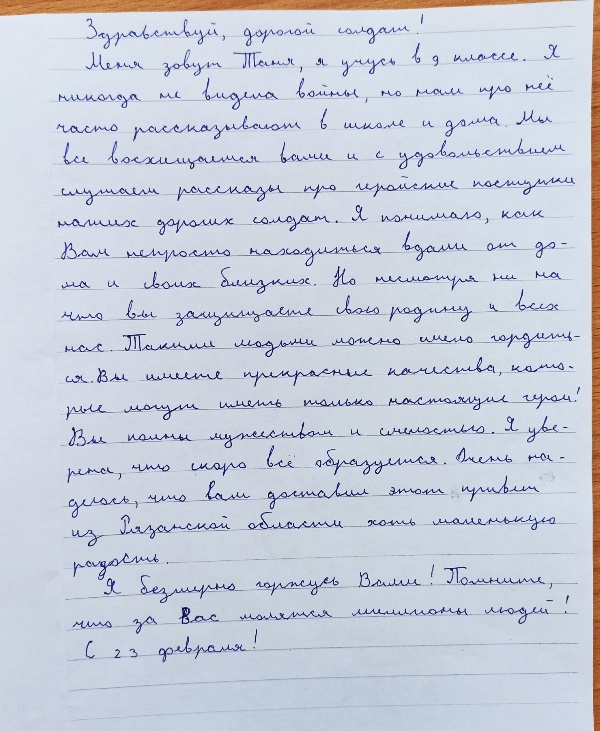 Здравствуй, дорогой солдат!
Меня зовут Таня, я учусь в 9 классе. Я
никогда не видела войны, но нам про неё
часто рассказывают в школе и дома. Мы
все восхищаемся вами и с удовольствием
слушаем рассказы про геройские поступки
наших дорогих солдат. Я понимаю, как
Вам непросто находиться вдали от до-
ма и своих близких. Но несмотря ни на
что вы защищаете свою родину и всех
нас. Такими людьми можно смело гордить-
ся. Вы имеете прекрасные качества, кото-
рые могут иметь только настоящие герои!
Вы полны мужеством и смелостью. Я уве-
рена, что скоро всё образуется. Очень на-
деюсь, что вам доставил этот привет
из Рязанской области хоть маленькую
радость.
Я безмерно горжусь Вами! Помните,
что за Вас молятся миллионы людей!
С 23 февраля!